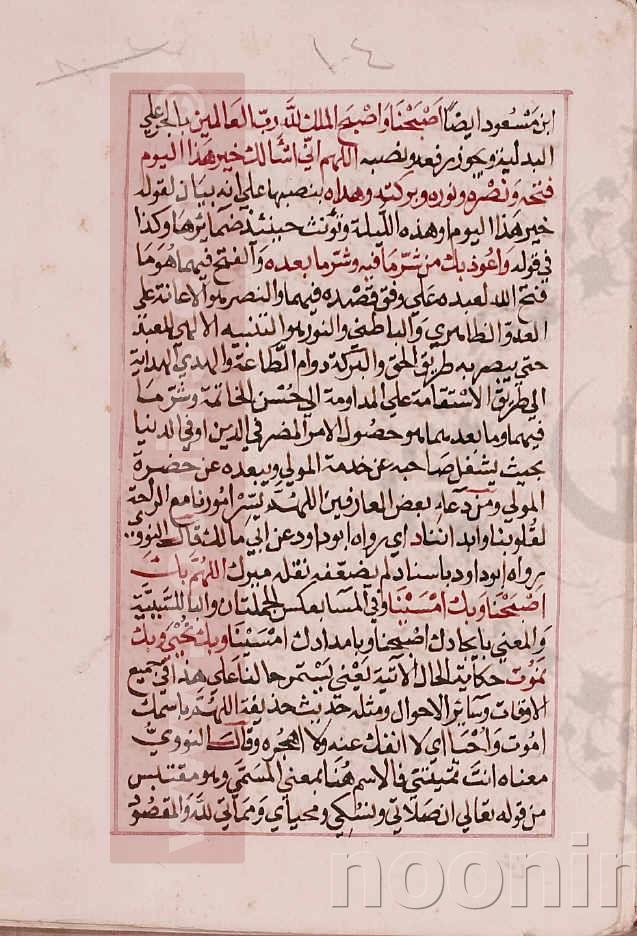 ١٠٤
ابن مسعود ايضا اصبحنا واصبح الملك لله رب العالمين بالجر علي
البدلية ويجوز رفعه ونصبه اللهم اني اسالك خير هذا اليوم
فتحه ونصره ونوره وبركته وهداه بنصبها علي انه بيان لقوله
خير هذا اليوم او هذه الليلة وتؤنث حينئذ ضمائرها وكذا
في قوله واعوذ بك من شر ما فيه وشر ما بعده والفتح فيهما هو ما
فتح الله لعبده علي وفق قصده فيهما والنصر هو الاعانة علي
العدو الظاهري والباطني والنور هو التنبيه الالهي للعبد
حتي يبصر به طريق الحق والبركة دوام الطاعة والهدي الهداية
الي طريق الاستقامة علي المداومة الي حسن الخاتمة وشر ما
فيهما وما بعدهما هو حصول الامر المضر في الدين او في الدنيا
بحيث يشغل صاحبه عن خدمة المولي ويبعده عن حضرة
المولي ومن دعاء بعض العارفين اللهم يسر امورنا مع الراحة
لقلوبنا وابداننا د اي رواه ابو داود عن ابي مالك قال النووي
رواه ابو داود باسناد لم يضعفه نقله ميرك اللهم بك
اصبحنا وبك امسينا وفي المسا بعكس الجملتان والبا للسببية
والمعني بايجادك اصبحنا وبامدادك امسينا وبك نحيي وبك
نموت حكاية للحال الاتية يعني يستمر حالنا علي هذا في جميع
الاوقات وسائر الاحوال ومثله حديث حذيفة اللهم باسمك
اموت واحيا اي لا انفك عنه ولا اهجره وقال النووي
معناه انت تميتني فالاسم هنا بمعني المسمي وهو مقتبس
من قوله تعالي ان صلاتي ونسكي ومحياي ومماتي لله والمقصود
noonin